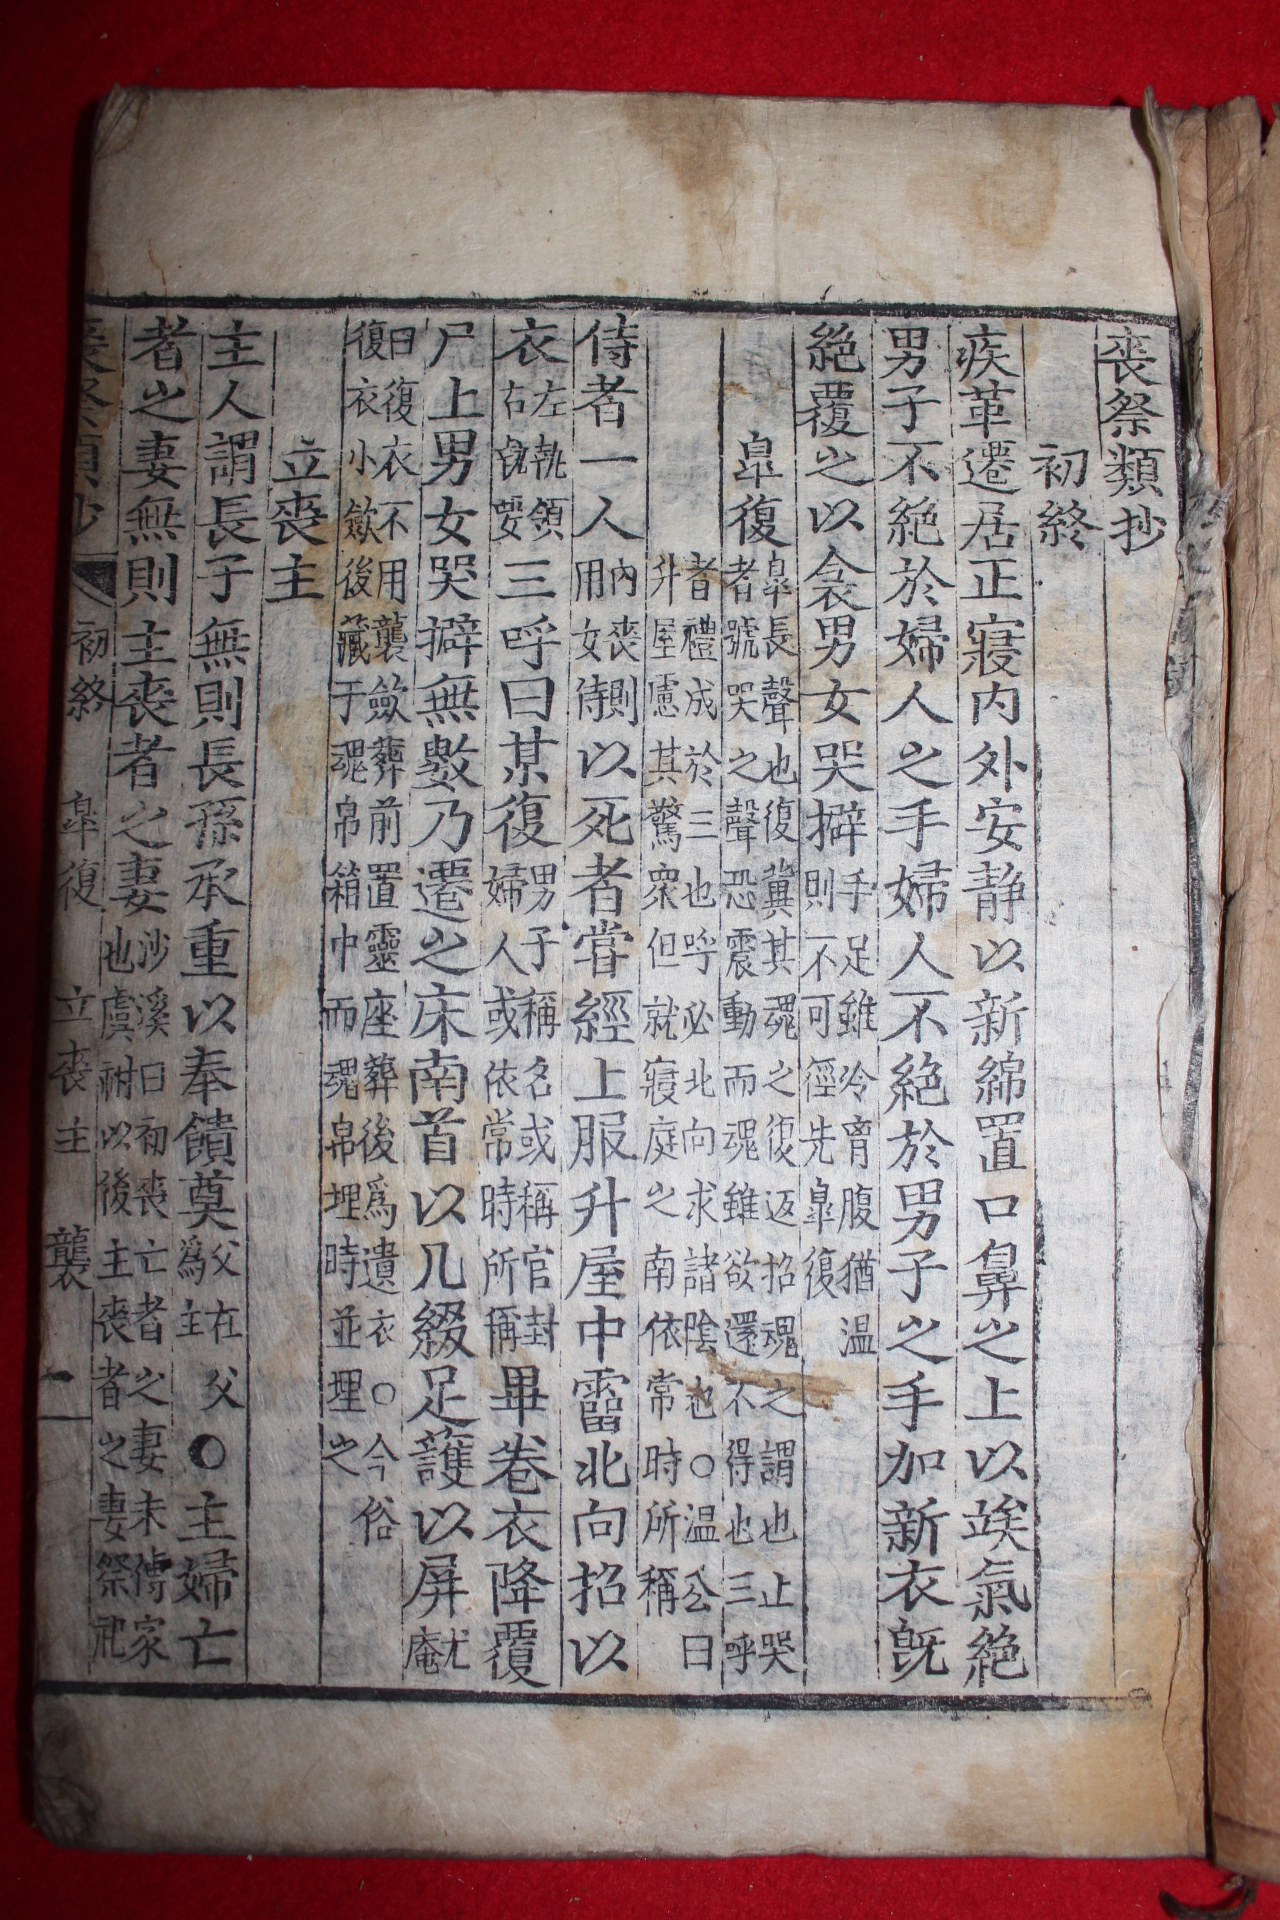 喪祭類抄
初終
疾革遷居正寢内外安静以新綿置口鼻之上以竢氣絶
男子不絶於婦人之手婦人不絶於男子之手加新衣旣
絶覆之以衾男女哭擗手足雖冷胷腹猶温
則不可徑先臯復
臯復臯長聲也復冀其魂之復返招魂之謂也止哭
者號哭之聲恐震動而魂雖欲還不得也三呼
者禮成於三也呼必北向求諸陰也○温公曰
升屋慮其驚衆但就寢庭之南依常時所稱
侍者一人内喪則
用女侍以死者甞經上服升屋中霤北向招以
衣左執領
右執要三呼曰某復男子稱名或稱官封
婦人或依常時所稱畢卷衣降覆
尸上男女哭擗無數乃遷之床南首以几綴足護以屏尤
庵
曰復衣不用襲斂葬前置靈座葬後爲遺衣○今俗
復衣小斂後藏于魂帛箱中而魂帛埋時並埋之
立喪主
主人謂長子無則長孫承重以奉饋奠父在父
爲主○主婦亡
者之妻無則主喪者之妻沙溪曰初喪亡者之妻未傳家
也虞祔以後主喪者之妻祭祀
喪祭類抄 初終 臯復 立喪主 襲 一